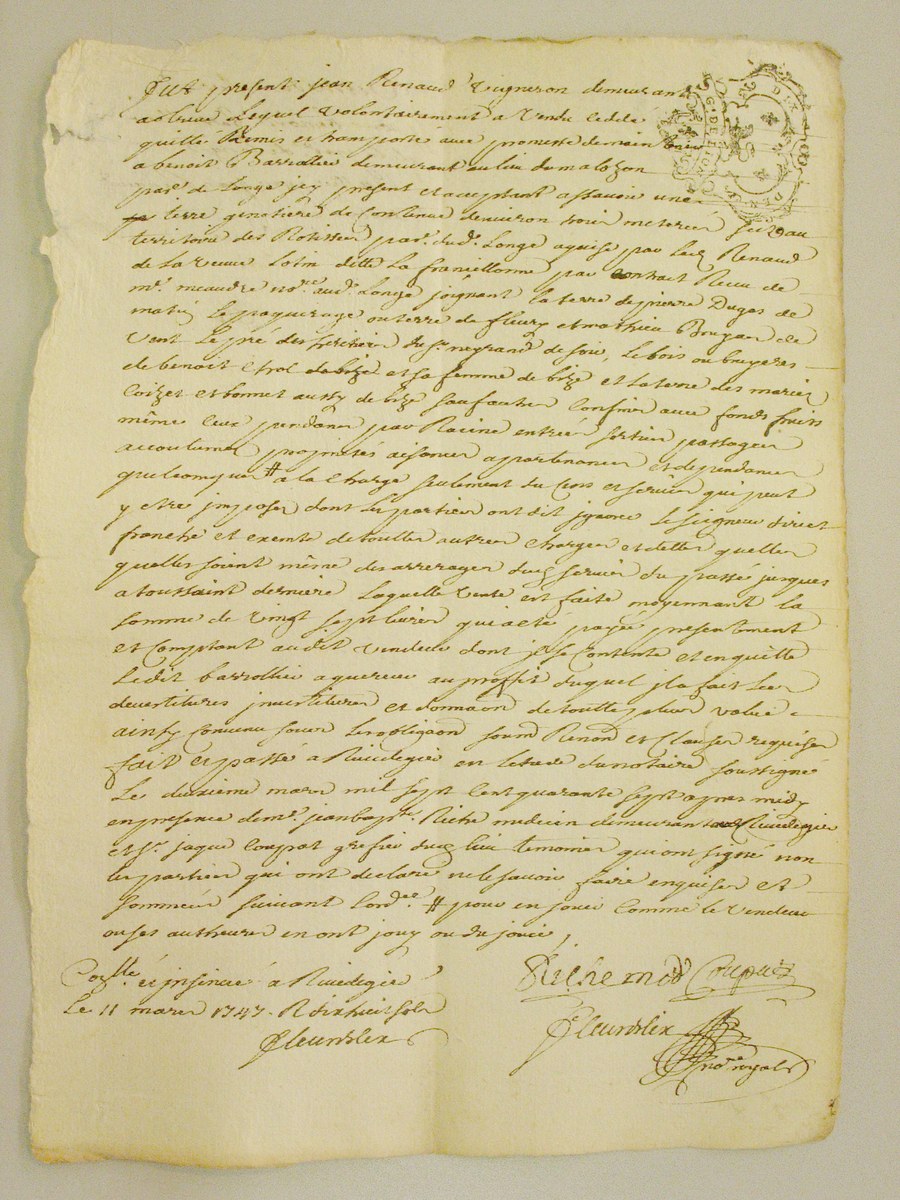 Fut present jean Renaud vigneron demeurant
a Lequel volontairement a vendu ceddé
quitté Remis et transporté avec promesse de maintenir
a benoit Barrollier demeurant au lieu du malozon
par.e de Longe jcy present et acceptant assavoir une
terre genetière de Contenue denviron trois meterée scize au
territoire des Rotisses par.e dud. Longe aquise par led. Renaud
de la veuve Lotin ditte La franillonne par Contract Receu de
m.e meaudre no.re aud. Longe joignant la terre de pierre Dugas de
matin le paquerage ou terre de fleury et mathieu Bruyas de
vent Le pré des heritiers du s.r negrand de soir, Le bois ou bruyeres
de benoit et sa femme de bize et la terre des mariés
et bonnet aussy de bize sauf autres Confins avec fonds fruits
même Ceux pendans par Racine entrées sorties passages
accoutumés proprietés aisances apartenances et dependances
quelconques # a la Charge seulement du Cens et servis qui peut
y etre jmposer dont les parties ont dit jgnorer Le seigneur direct
franche et exempte de touttes autres Charges et dettes quelles
quelles soient même des arrerages dud. servis du passé jusques
a toussaint derniere Laquelle vente est faite moyennant la
somme de vingt sept livres qui a eté payée presentement
et Comptant audit vendeur dont jl se Contente et en quitte
Ledit barrollier aquereur au proffit duquel jl a fait Les
devestitures jnvestitures et donnaon de toutte plus value
ainsy Convenu sous Les obligaons soum Renon et Clauses requises
fait et passé a Rivedegier en letude du notaire soussigné
Le deuxieme mars mil sept Cent quarante sept apres midy
en presence de m.e jean bap.te Riche medecin demeurant aud. Rivedegier
et s.r jaque Compat grefier dud. lieu temoins qui ont signé non
les parties qui ont declaré ne le savoir faire enquises et
sommées suivant Lord.ce # pour en jouir Comme le vendeur
ou ses autheurs en ont jouy ou du jouir,
Con.llé et jnsinué à Rivedegier
Le 11 mars 1747. R dixhuit sols
Fleurdelix
Riche md
Fleurdelix
no.re royal